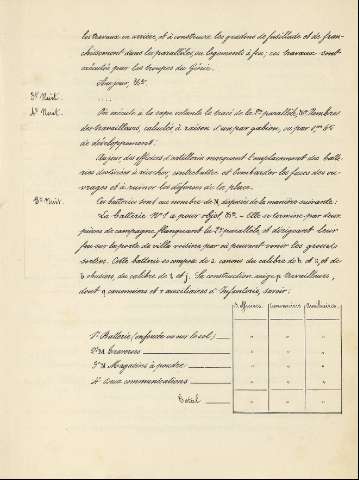 les travaux en arrière, et à construire les gradins de fusillade et de fran-
chissement dans les parallèles, ou logements à feu; ces travaux sont
exécutés par les troupes du Génie.
Au jour
3e Nuit.
4e Nuit. On exécute à la sape volante le tracé de la parallèle. Nombres
des travailleurs, calculés à raison d'un par gabion, ou par 1m
de développement:
Au jour des officiers d'artillerie marquent l'emplacement des batte-
ries destinées à ricocher, contrebattre et bombarder les faces des ou-
vrages et à ruiner les défenses de la place.
5e Nuit. Ces batteries sont au nombre de disposées de la manière suivante:
La batterie No 1 a pour objet Elle se termine par deux
pièces de campagne flanquant la parallèle et dirigeant leur
feu sur la porte de ville voisine par où peuvent venir les grosses
sorties. Cette batterie se compose de canons du calibre de et et de
obusiers du calibre de et Sa construction exige travailleurs,
dont canonniers et auxiliaires d'Infanterie, savoir:
Officiers. Canonniers Auxiliaires.
1o Batterie (enfoncée ou sur le sol)
2o Traverses
3o Magasins à poudre
4o Aux communications
Total